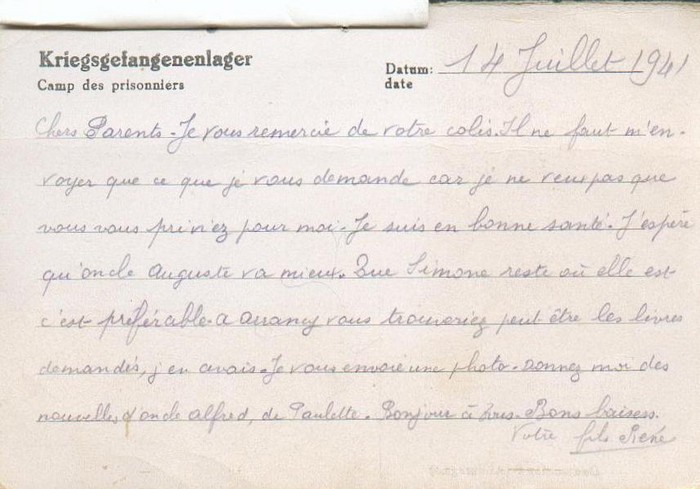 Kriegsgefangenenlager
Camp des prisonniers
Datum:
date
14 Juillet 1941
Chers Parents - Je vous remercie de votre colis. Il ne faut m'en-
voyer que ce que je vous demande car je ne veux pas que
vous vous priviez pour moi - Je suis en bonne santé. J'espère
qu'oncle Auguste va mieux. Que Simone reste où elle est
c'est préférable. a arrancy vous trouveriez peut être les livres
demandés, j'en avais. Je vous envoie une photo. Donnez moi des
nouvelles d'oncle alfred, de Paulette. Bonjour à tous. Bons baisers.
Votre fils René